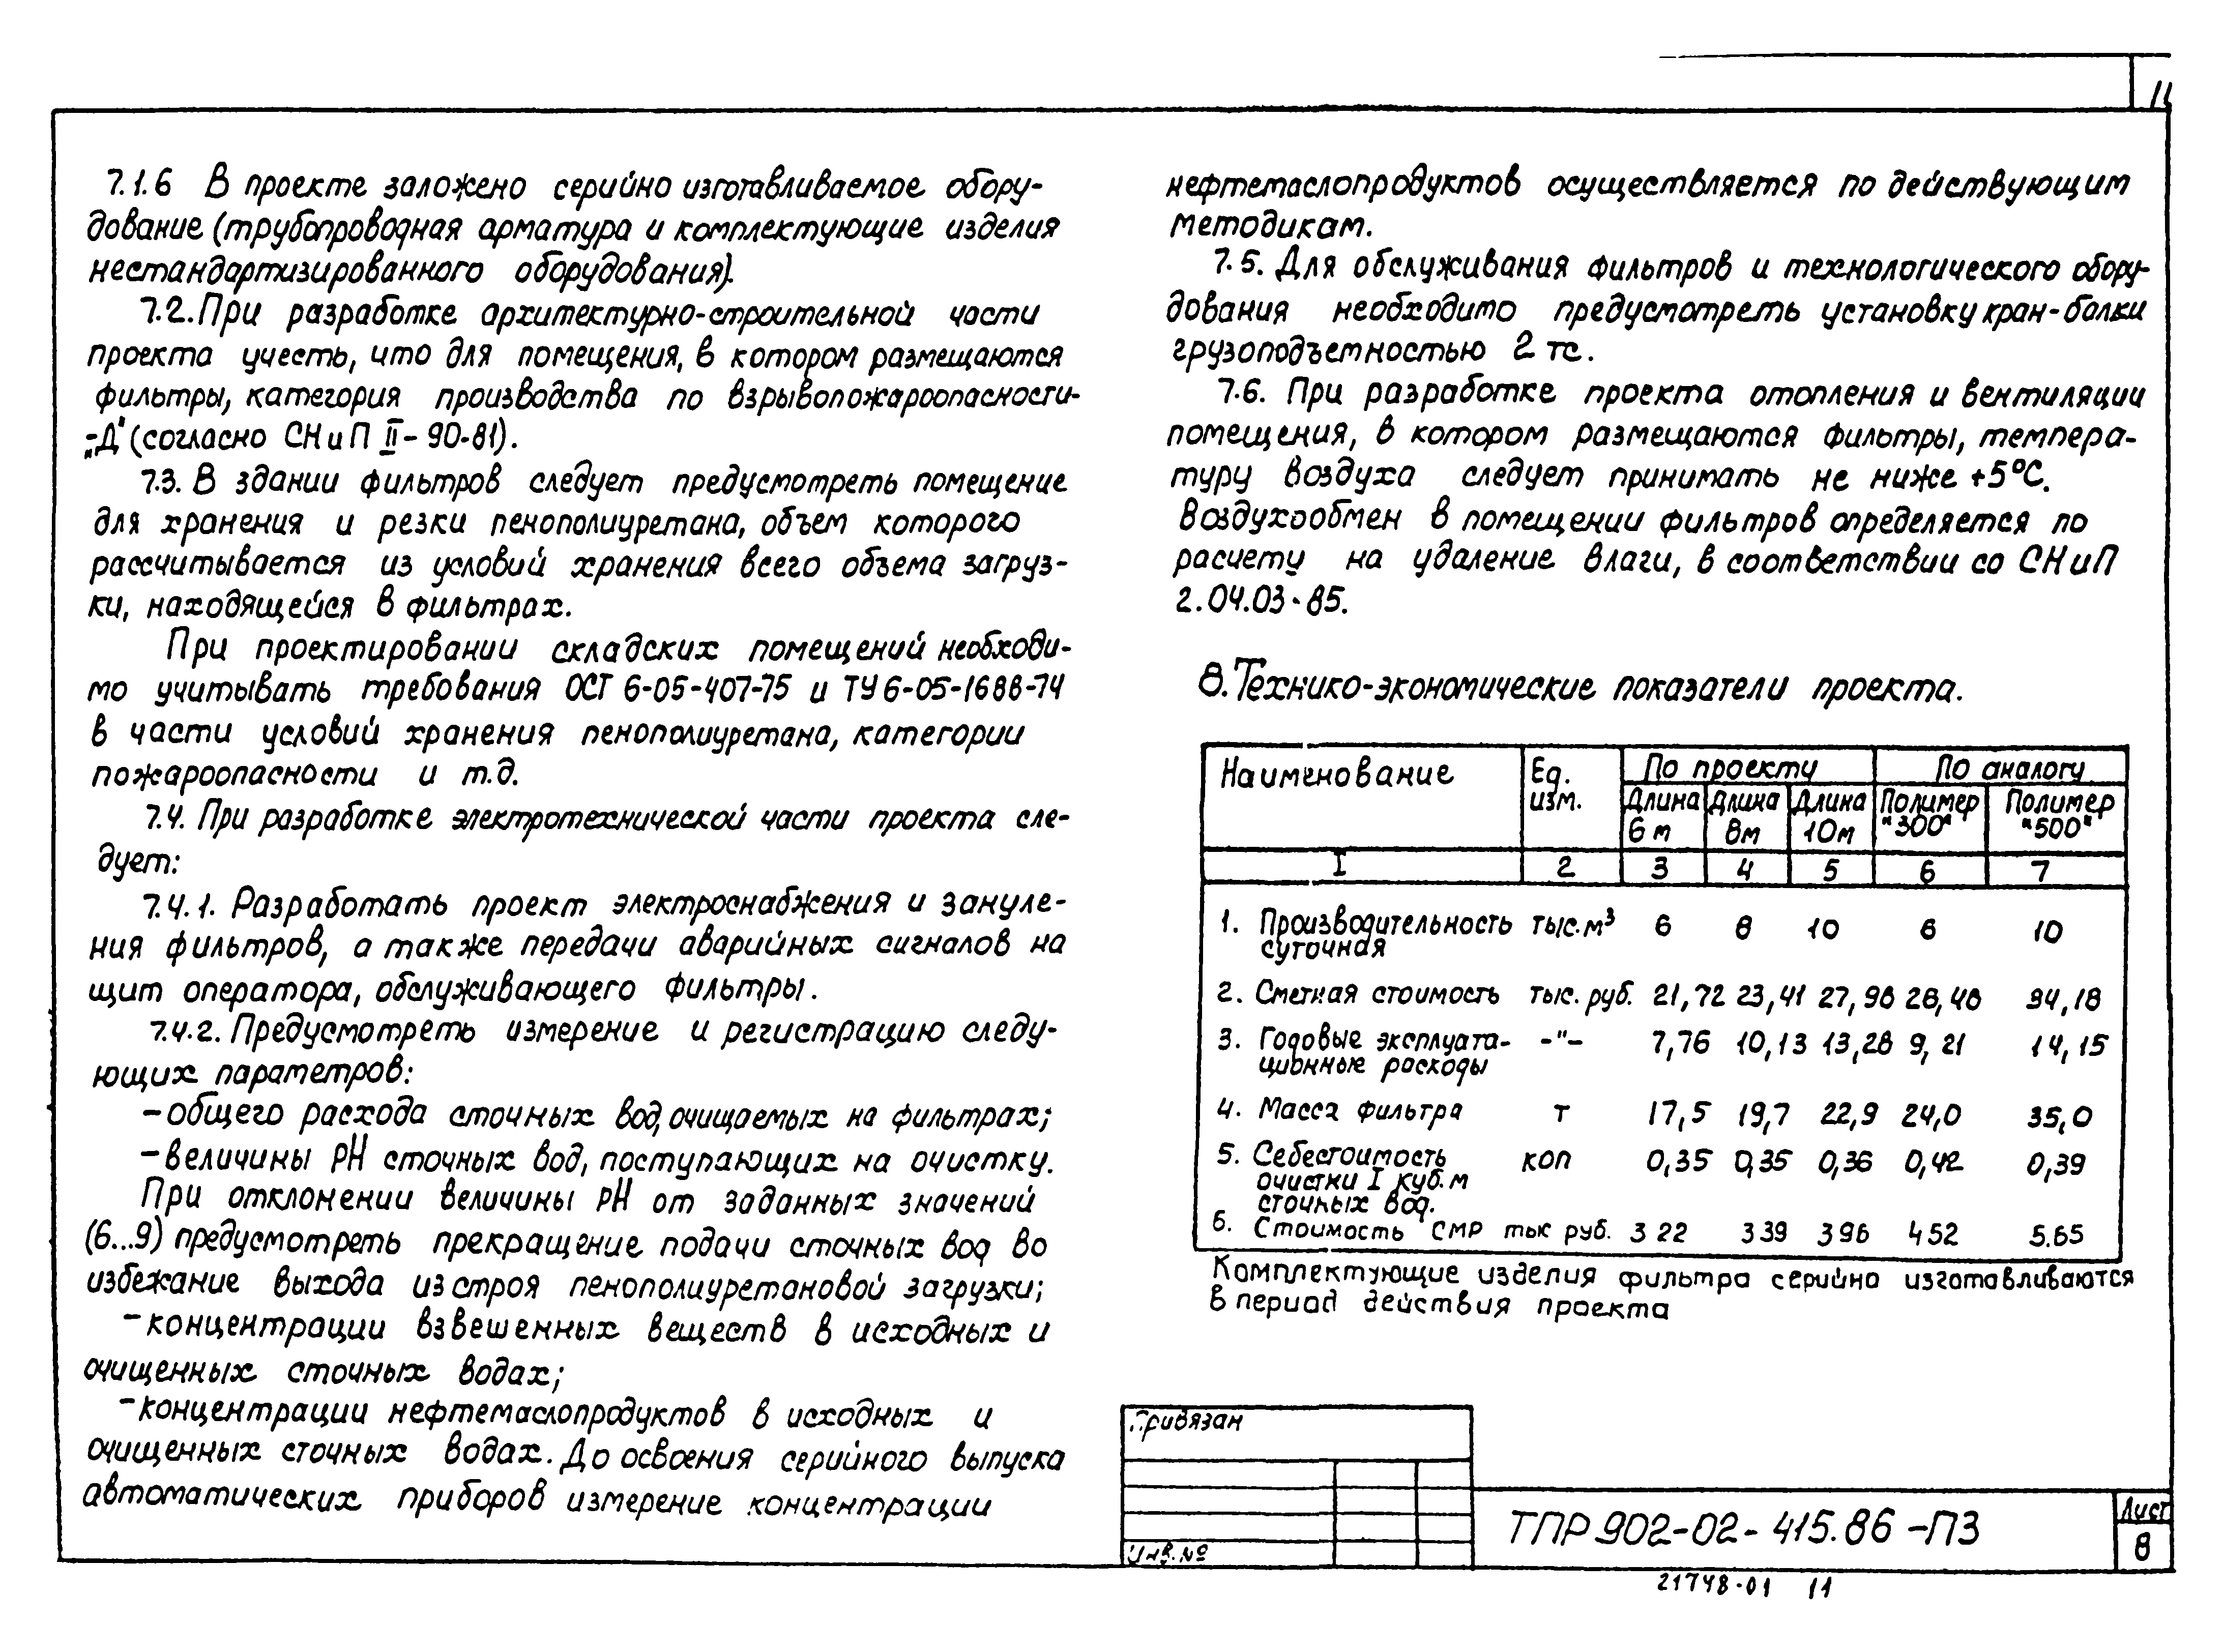 11
7.1.6 В проекте заложено серийно изготавливаемое обору-
дование (трубопроводная арматура и комплектующие изделия
нестандартизированного оборудования).
7.2. При разработке архитектурно-строительной части
проекта учесть, что для помещения, в котором размещаются
фильтры, категория производства по взрывопожароопасности-
-„Д" (согласно СНиП II-90-81).
7.3. В здании фильтров следует предусмотреть помещение
для хранения и резки пенополиуретана, объем которого
рассчитывается из условий хранения всего объема загруз-
ки, находящейся в фильтрах.
При проектировании складских помещений необходи-
мо учитывать требования ОСТ 6-05-407-75 и ТУ 6-05-1688-74
в части условий хранения пенополиуретана, категории
пожароопасности и т.д.
7.4. При разработке электротехнической части проекта сле-
дует:
7.4.1. Разработать проект электроснабжения и зануле-
ния фильтров, а также передачи аварийных сигналов на
щит оператора, обслуживающего фильтры.
7.4.2. Предусмотреть измерение и регистрацию следу-
ющих параметров:
-общего расхода сточных вод, очищаемых на фильтрах;
-величины pH сточных вод, поступающих на очистку.
При отклонении величины pH от заданных значений
(6...9) предусмотреть прекращение подачи сточных вод во
избежание выхода из строя пенополиуретановой загрузки;
-концентрации взвешенных веществ в исходных и
очищенных сточных водах;
-концентрации нефтемаслопродуктов в исходных и
очищенных сточных водах. До освоения серийного выпуска
автоматических приборов измерение концентрации
нефтемаслопродуктов осуществляется по действующим
методикам.
7.5. Для обслуживания фильтров и технологического обору-
дования необходимо предусмотреть установку кран-балки
грузоподъемностью 2 тс.
7.6. При разработке проекта отопления и вентиляции
помещения, в котором размещаются фильтры, темпера-
туру воздуха следует принимать не ниже +5°С.
Воздухообмен в помещении фильтров определяется по
расчету на удаление влаги, в соответствии со СНиП
2.04.03-85.
8. Технико-экономические показатели проекта.
Наименование Ед. изм. По проекту По аналогу
Длина 6 м Длина 8м Длина 10м Полимер "300" Полимер "500"
I 2 3 4 5 6 7
1. Производительность тыс.м³ 6 8 10 6 10
суточная
2. Сметная стоимость тыс. руб. 21,72 23,41 27,98 28,48 34,18
3. Годовые эксплуата- -"- 7,76 10,13 13,28 9,21 14,15
ционные расходы
4. Масса фильтра т 17,5 19,7 22,9 24,0 35,0
5. Себестоимость коп 0,35 0,35 0,36 0,42 0,39
очистки I куб.м
сточных вод.
6. Стоимость СМР тык руб. 3 22 3 39 3 96 4 52 5.65
Комплектующие изделия фильтра серийно изготавливаются
в период действия проекта
Привязан
Инв. №
ТПР 902-02-415.86-ПЗ
Лист
8
21748-01 11